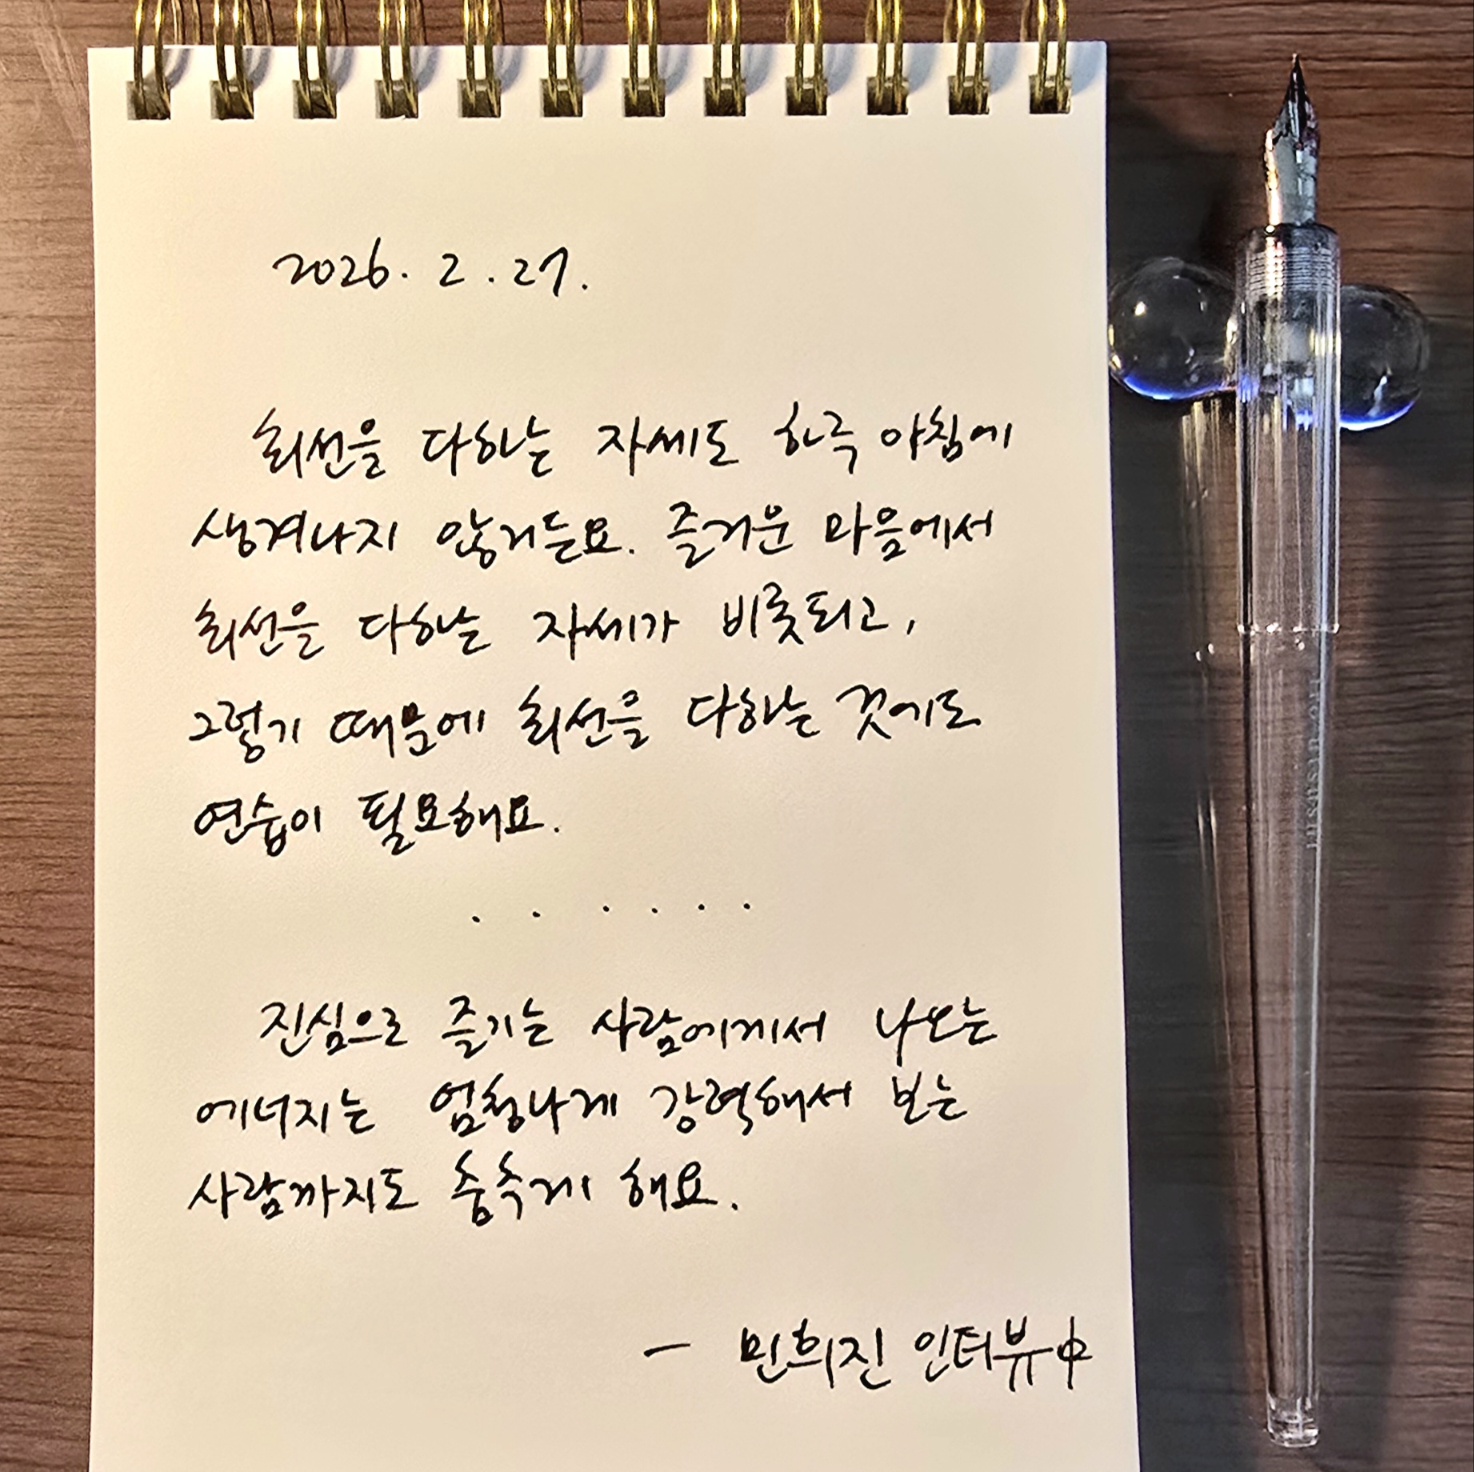 2026. 2. 27.
최선을 다하는 자세도 하루 아침에
생겨나지 않거든요. 즐거운 마음에서
최선을 다하는 자세가 비롯되고,
그렇기 때문에 최선을 다하는 것에도
연습이 필요해요.
. . . . . .
진심으로 즐기는 사람에게서 나오는
에너지는 엄청나게 강력해서 보는
사람까지도 춤추게 해요.
- 민희진 인터뷰 中